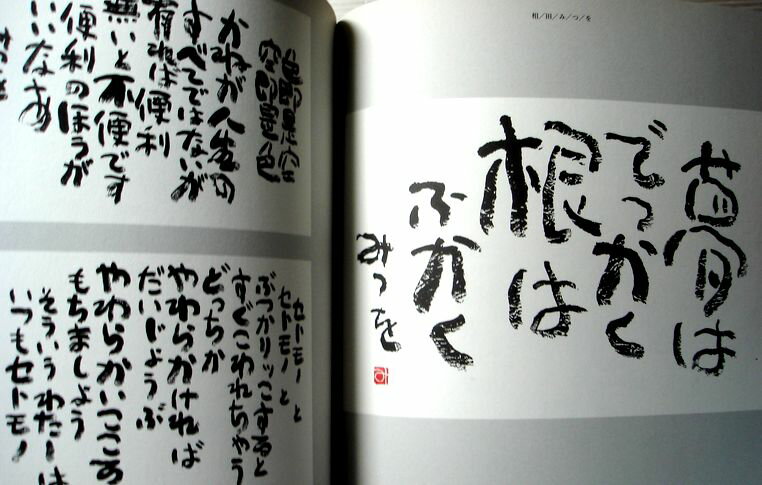 相/田/み/つ/を
夢は
でっかく
根は
ふかく
みつを
色即是空
空即是色
かねが人生の
すべてではないが
有れば便利
無いと不便です
便利のほうが
いいなあ
みつを
セトモノと
セトモノと
ぶつかりッこすると
すぐこわれちゃう
どっちか
やわらかければ
だいじょうぶ
やわらかいこころ
もちましょう
そういうわたしは
いつもセトモノ